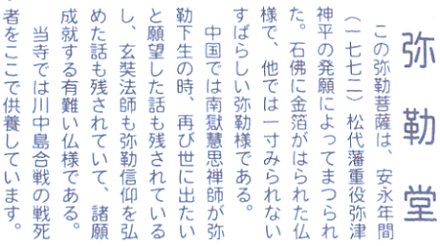 弥勒堂
この弥勒菩薩は、安永年間
（一七七二）松代藩重役弥津
神平の発願によってまつられ
た。石佛に金箔がはられた仏
様で、他では一寸みられない
すばらしい弥勒様である。
中国では南獄慧思禅師が弥
勒下生の時、再び世に出たい
と願望した話も残されている
し、玄奘法師も弥勒信仰を弘
めた話も残されていて、諸願
成就する有難い仏様である。
当寺では川中島合戦の戦死
者をここで供養しています。